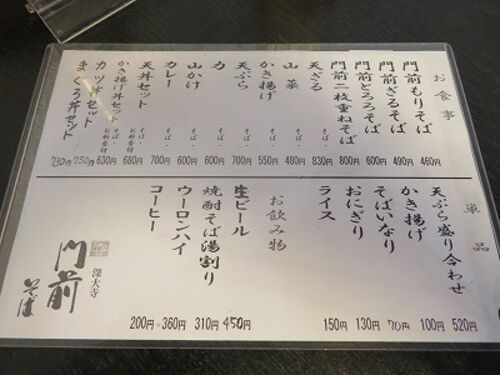 お食事
門前もりそば 460円
門前ざるそば 490円
門前とろろそば 600円
門前二枚重ねそば 800円
天ざる 830円
山菜 そば・ 480円
かき揚げ そば・ 550円
天ぷら そば・ 700円
力 そば・ 600円
山かけ そば・ 600円
カレー そば・ 700円
天丼セット そば・ 700円
かき揚げ丼セット そば・お新香付 680円
カツ丼セット そば・お新香付 630円
まぐろ丼セット 730円 750円
単品
天ぷら盛り合わせ 520円
かき揚げ 100円
そばいなり 70円
おにぎり 130円
ライス 150円
お飲み物
生ビール 450円
焼酎そば湯割り 310円
ウーロンハイ 360円
コーヒー 200円
深大寺
門前
そば